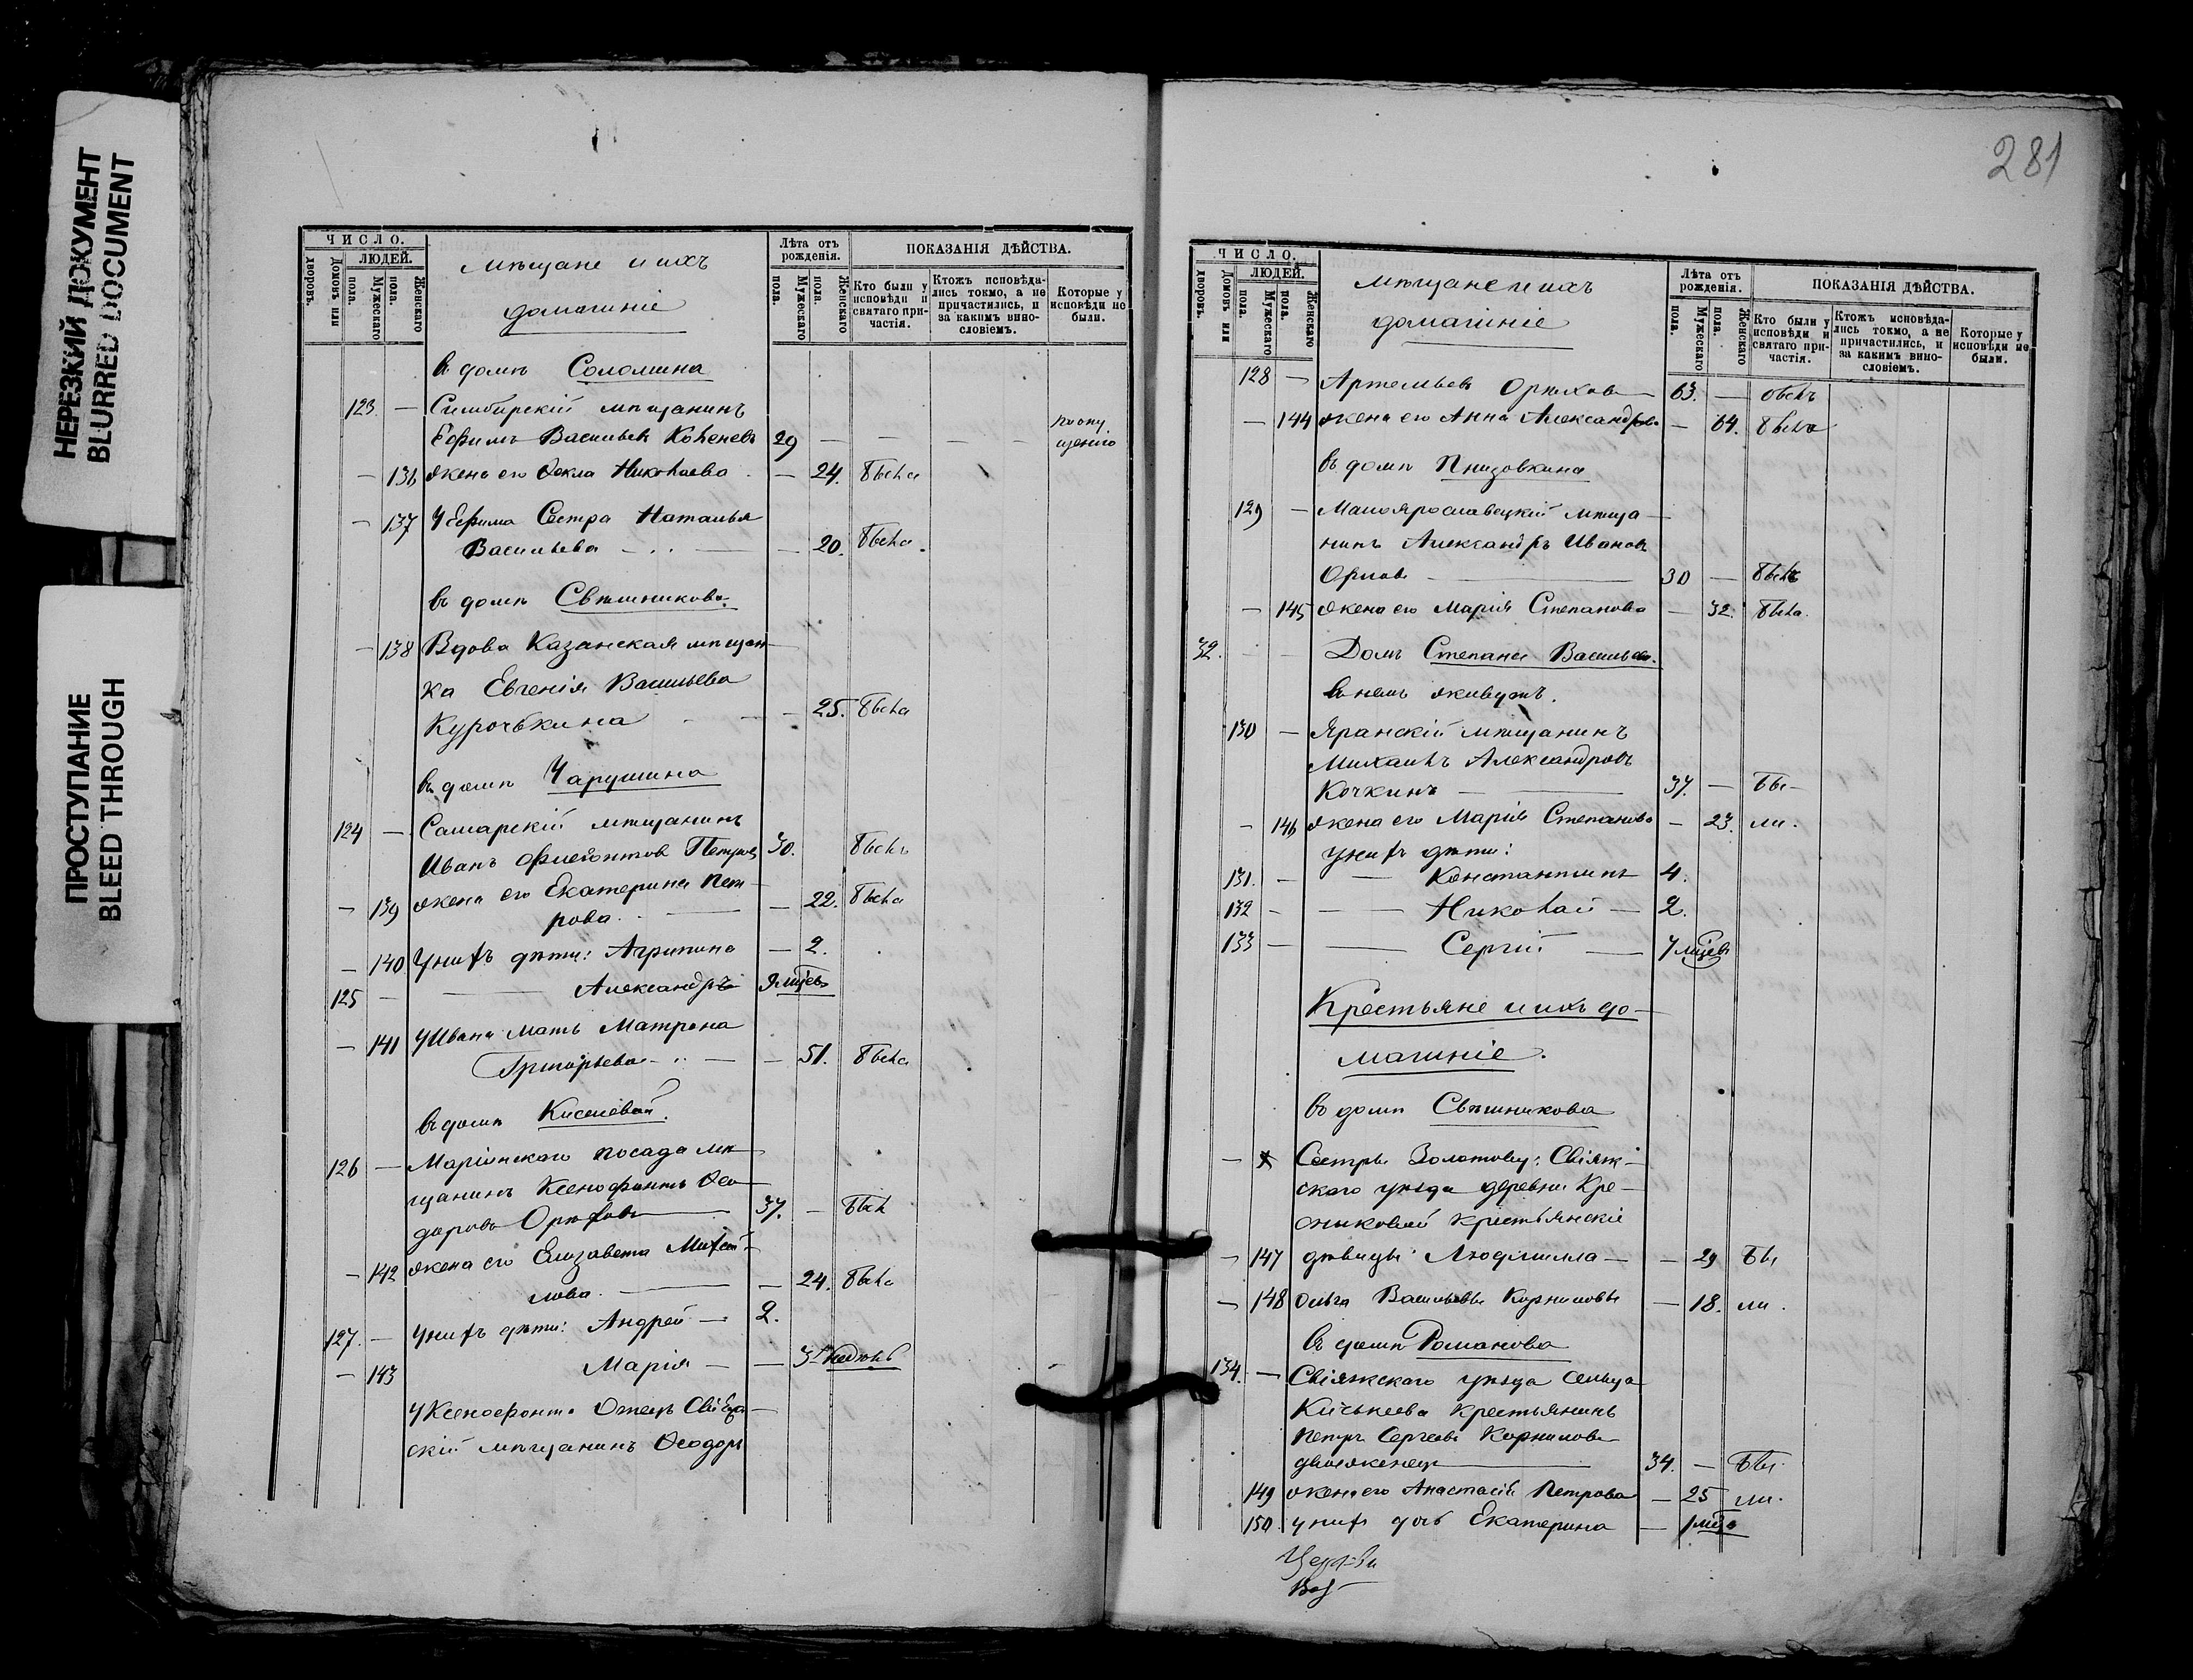 НЕРЕЗКИЙ ДОКУМЕНТ
BLURRED DOCUMENT
ПРОСТУПАНИЕ
BLEED THROUGH
ЧИСЛО.
ЛЮДЕЙ.
Домовъ или дворовъ.
Мужескаго пола.
Женскаго пола.
Мѣщане и ихъ
домашніе
Лѣта отъ рожденія.
Мужескаго пола.
Женскаго пола.
ПОКАЗАНІЯ ДѢЙСТВА.
Кто были у исповѣди и святаго причастія.
Ктожъ исповѣдались токмо, а не причастились, и за какимъ винословіемъ.
Которые у исповѣди не были.
въ домѣ Соломина
123. — Симбирскій мѣщанинъ
Ефимъ Васильевъ 29 — — — — по опущенію
— 136 жена его Ѳекла Николаева — 24. бысть
— 137 У Ефима Сестра Наталья
Васильева — 20.
въ домѣ Свѣшникова
— 138 Вдова Казанская мѣщан-
ка Евгенія Васильева
Курочькина — 25.
въ домѣ Чарушина
124 — Самарскій мѣщанинъ
Иванъ Петровъ 30.
— 139 жена его Екатерина Пет-
рова — 22.
— 140 У нихъ дѣти: Агрипина — 2.
125 — — Александръ
— 141 У Ивана мать Матрона
Григорьева — 51.
въ домѣ Киселевой.
126 — Маріинскаго посада мѣ-
щанинъ Ксенофонтъ Ѳео-
доровъ Орѣховъ 37. —
— 142 жена его Елизавета Михай-
лова — 24.
127. — У нихъ дѣти: Андрей — 2.
— 143 Марія — — 3
У Ксенофонта Отецъ
скій мѣщанинъ Ѳеодоръ
281
ЧИСЛО.
ЛЮДЕЙ.
Домовъ или дворовъ.
Мужескаго пола.
Женскаго пола.
мѣщане и ихъ
домашніе
Лѣта отъ рожденія.
Мужескаго пола.
Женскаго пола.
ПОКАЗАНІЯ ДѢЙСТВА.
Кто были у исповѣди и святаго причастія.
Ктожъ исповѣдались токмо, а не причастились, и за какимъ винословіемъ.
Которые у исповѣди не были.
128 — Артемьевъ Орѣховъ 63. —
— 144 жена его Анна Александрова — 64.
въ домѣ Пнизовкина
129 — Малоярославецкій мѣща-
нинъ Александръ Ивановъ
Орловъ 30 —
— 145 жена его Марія Степанова — 32.
32. — — Домъ Степана Васильева.
въ немъ живутъ.
130 — Яранскій мѣщанинъ
Михаилъ Александровъ
Кочкинъ 37. — Бы-
— 146 жена его Марія Степанова — 23. ли.
у нихъ дѣти:
131. — — Константинъ 4.
132 — — Николай — 2.
133 — — Сергій — 7 мѣсяцевъ
Крестьяне и ихъ до-
машніе.
въ домѣ Свѣшникова
— х Сестры Свіяж-
скаго уѣзда деревни Кре-
стьянскіе
— 147 дѣвицы: Людмилла — — 29 Бы
— 148 Ольга Васильевы Корниловы — 18. ли.
въ домѣ Романова
134. — Свіяжскаго уѣзда сельца
крестьянинъ
Петръ Сергеевъ Корниловъ
двоеженецъ 34. — Бы-
149 жена его Анастасія Петрова — 25 ли.
150. у нихъ дочь Екатерина — 1
Церкви